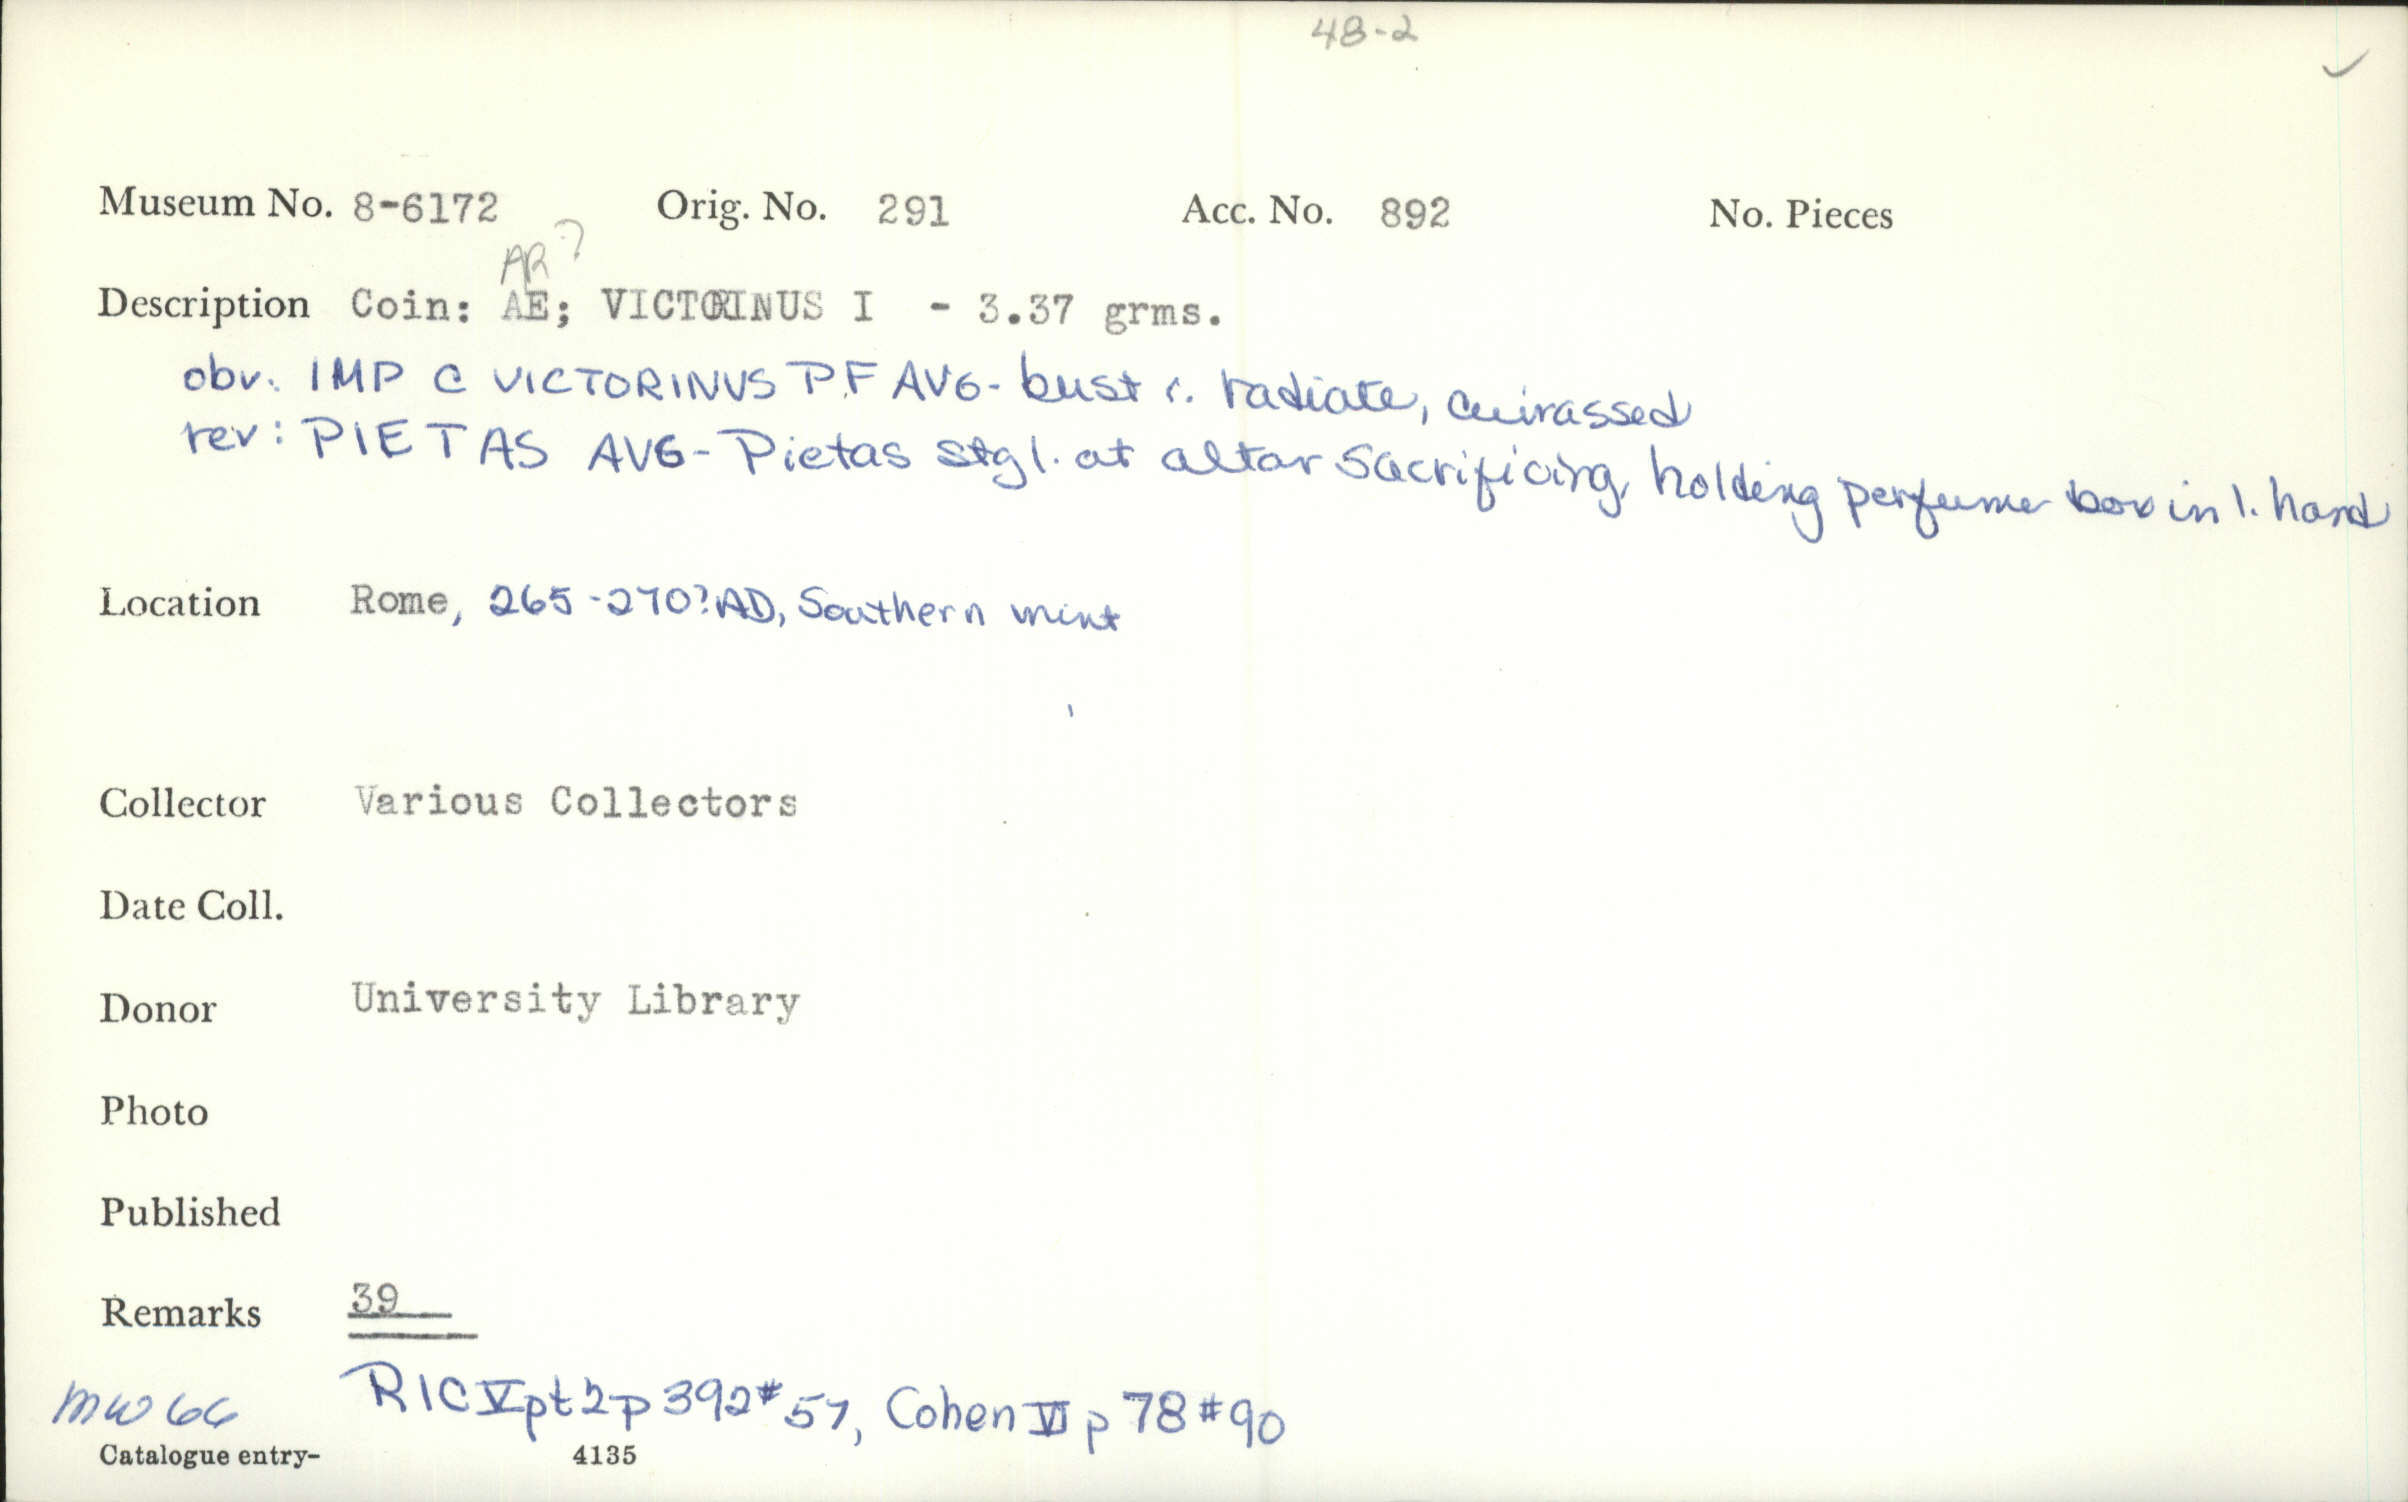 48-2
Museum No. 8-6172 Orig. No. 291 Acc. No. 892 No. Pieces
AR?
Description Coin: AE; VICTORINUS I - 3.37 grms.
obv. IMP C VICTORINVS P.F AVG- bust r. radiate, cuirassed
rev: PIETAS AVG- Pietas stg l. at altar sacrificing, holding perfume box in l. hand
Location Rome, 265-270? AD, Southern mint
Collector Various Collectors
Date Coll.
Donor University Library
Photo
Published
Remarks 39
MW 66 RIC V pt 2 p 392 # 57, Cohen VI p 78 # 90
Catalogue entry- 4135